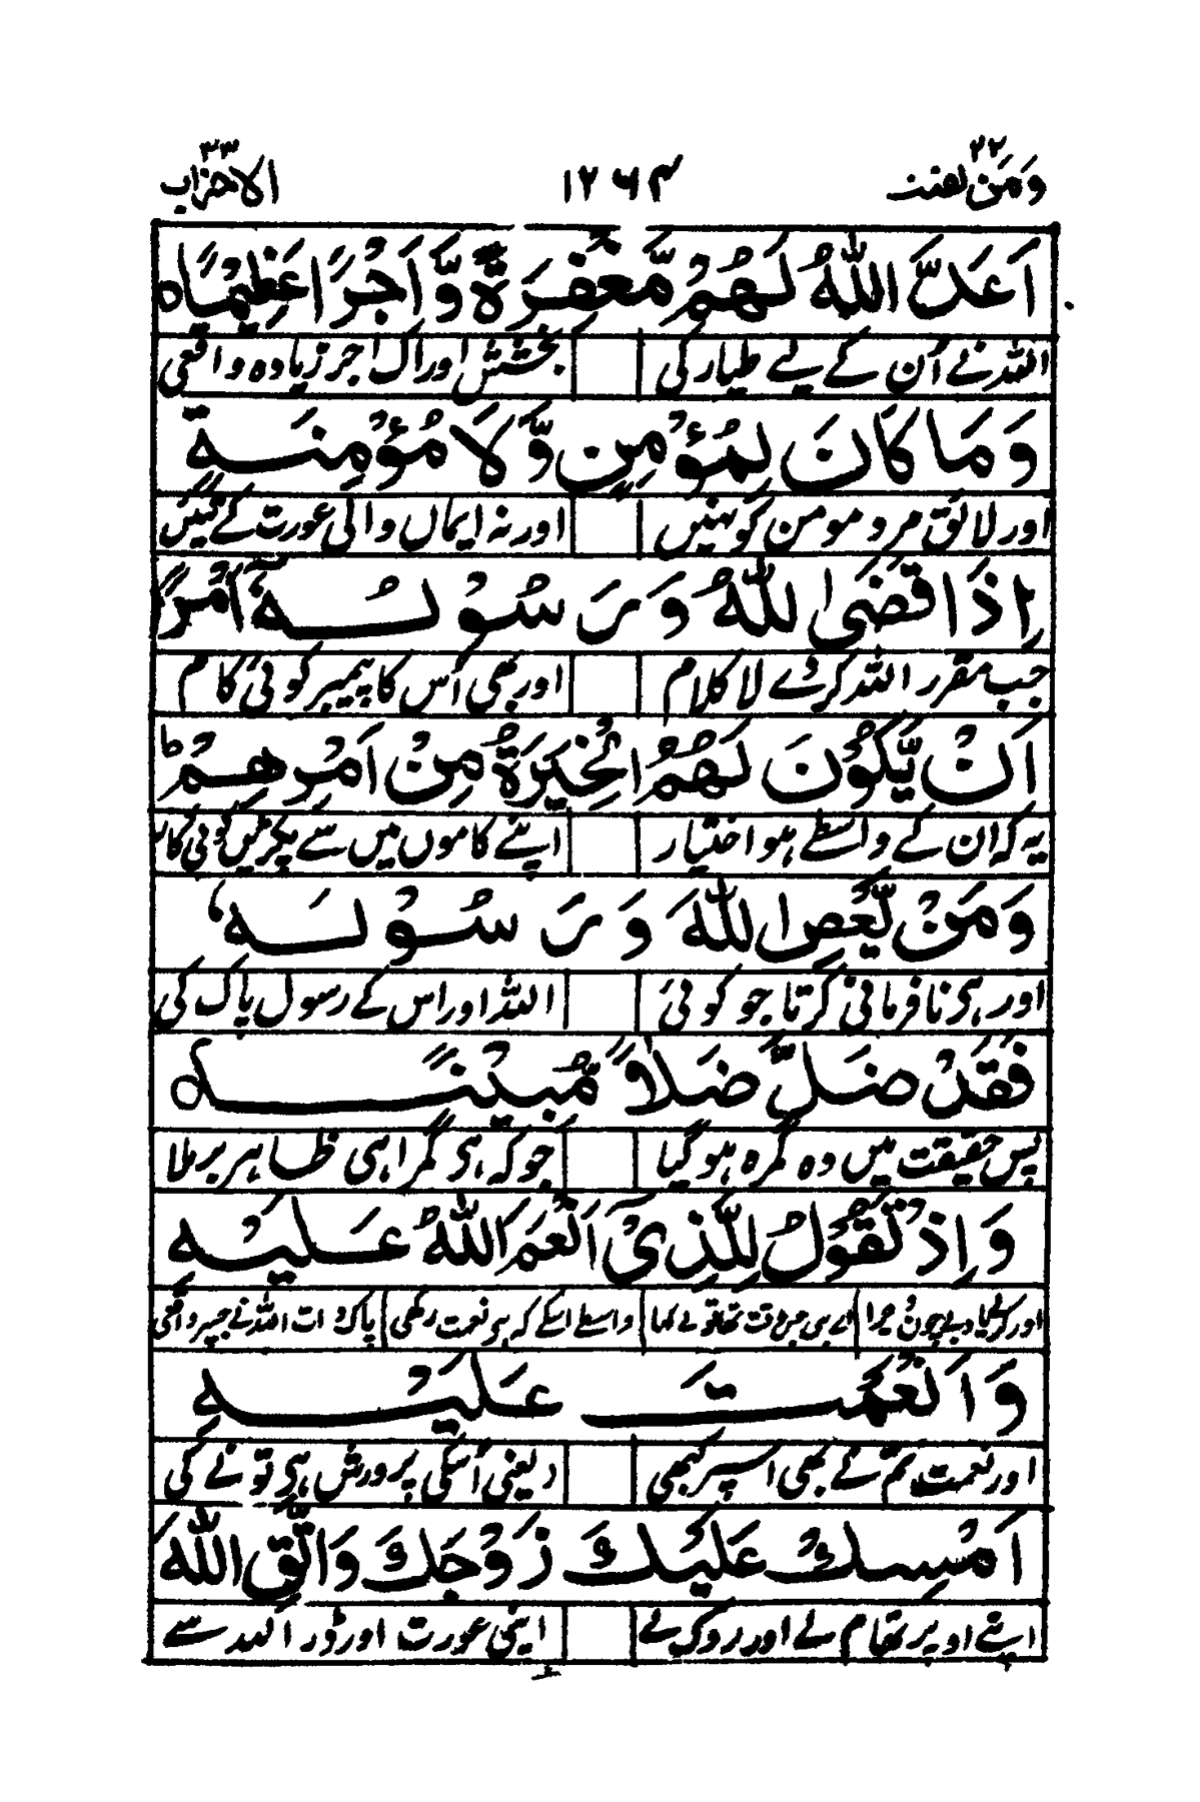 ومن یقنت ۲۲ ۱۲۶۴ الاحزاب ۳۳
اَعَدَّ اللّٰهُ لَهُمْ مَّغْفِرَةً وَّاَجْرًا عَظِيْمًا ○
اللہ نے اُن کے لیے طیار کی بخشش اور اک اجر زیادہ واقعی
وَمَا كَانَ لِمُؤْمِنٍ وَّلَا مُؤْمِنَةٍ
اور لائق مرد مومن کو نہیں اور نہ ایماں والی عورت کے تئیں
اِذَا قَضَى اللّٰهُ وَرَسُوْلُهٗٓ اَمْرًا
جب مقرر اللہ کر دے لا کلام اور بھی اُس کا پیمبر کوئی کام
اَنْ يَّكُوْنَ لَهُمُ الْخِيَرَةُ مِنْ اَمْرِهِمْ ؕ
یہ کہ ان کے واسطے ہو اختیار اپنے کاموں میں سے پکڑیں کوئی کار
وَمَنْ يَّعْصِ اللّٰهَ وَرَسُوْلَهٗ
اور ہی نافرمانی کرتا جو کوئی اللہ اور اس کے رسول پاک کی
فَقَدْ ضَلَّ ضَلٰلًا مُّبِيْنًا ○
پس حقیقت میں وہ گمرہ ہو گیا جو کہ ہی گمراہی ظاہر برملا
وَاِذْ تَقُوْلُ لِلَّذِيْٓ اَنْعَمَ اللّٰهُ عَلَيْهِ
واسطے اسکے کہ ہی نعمت رکھی پاک ذات اللہ نے جسپر واقعی
وَاَنْعَمْتَ عَلَيْهِ
اور نعمت تم نے بھی اسپر کبھی یعنی اُسکی پرورش ہی تو نے کی
اَمْسِكْ عَلَيْكَ زَوْجَكَ وَاتَّقِ اللّٰهَ
اپنے اوپر تھام لے اور روک لے اپنی عورت اور ڈر اللہ سے